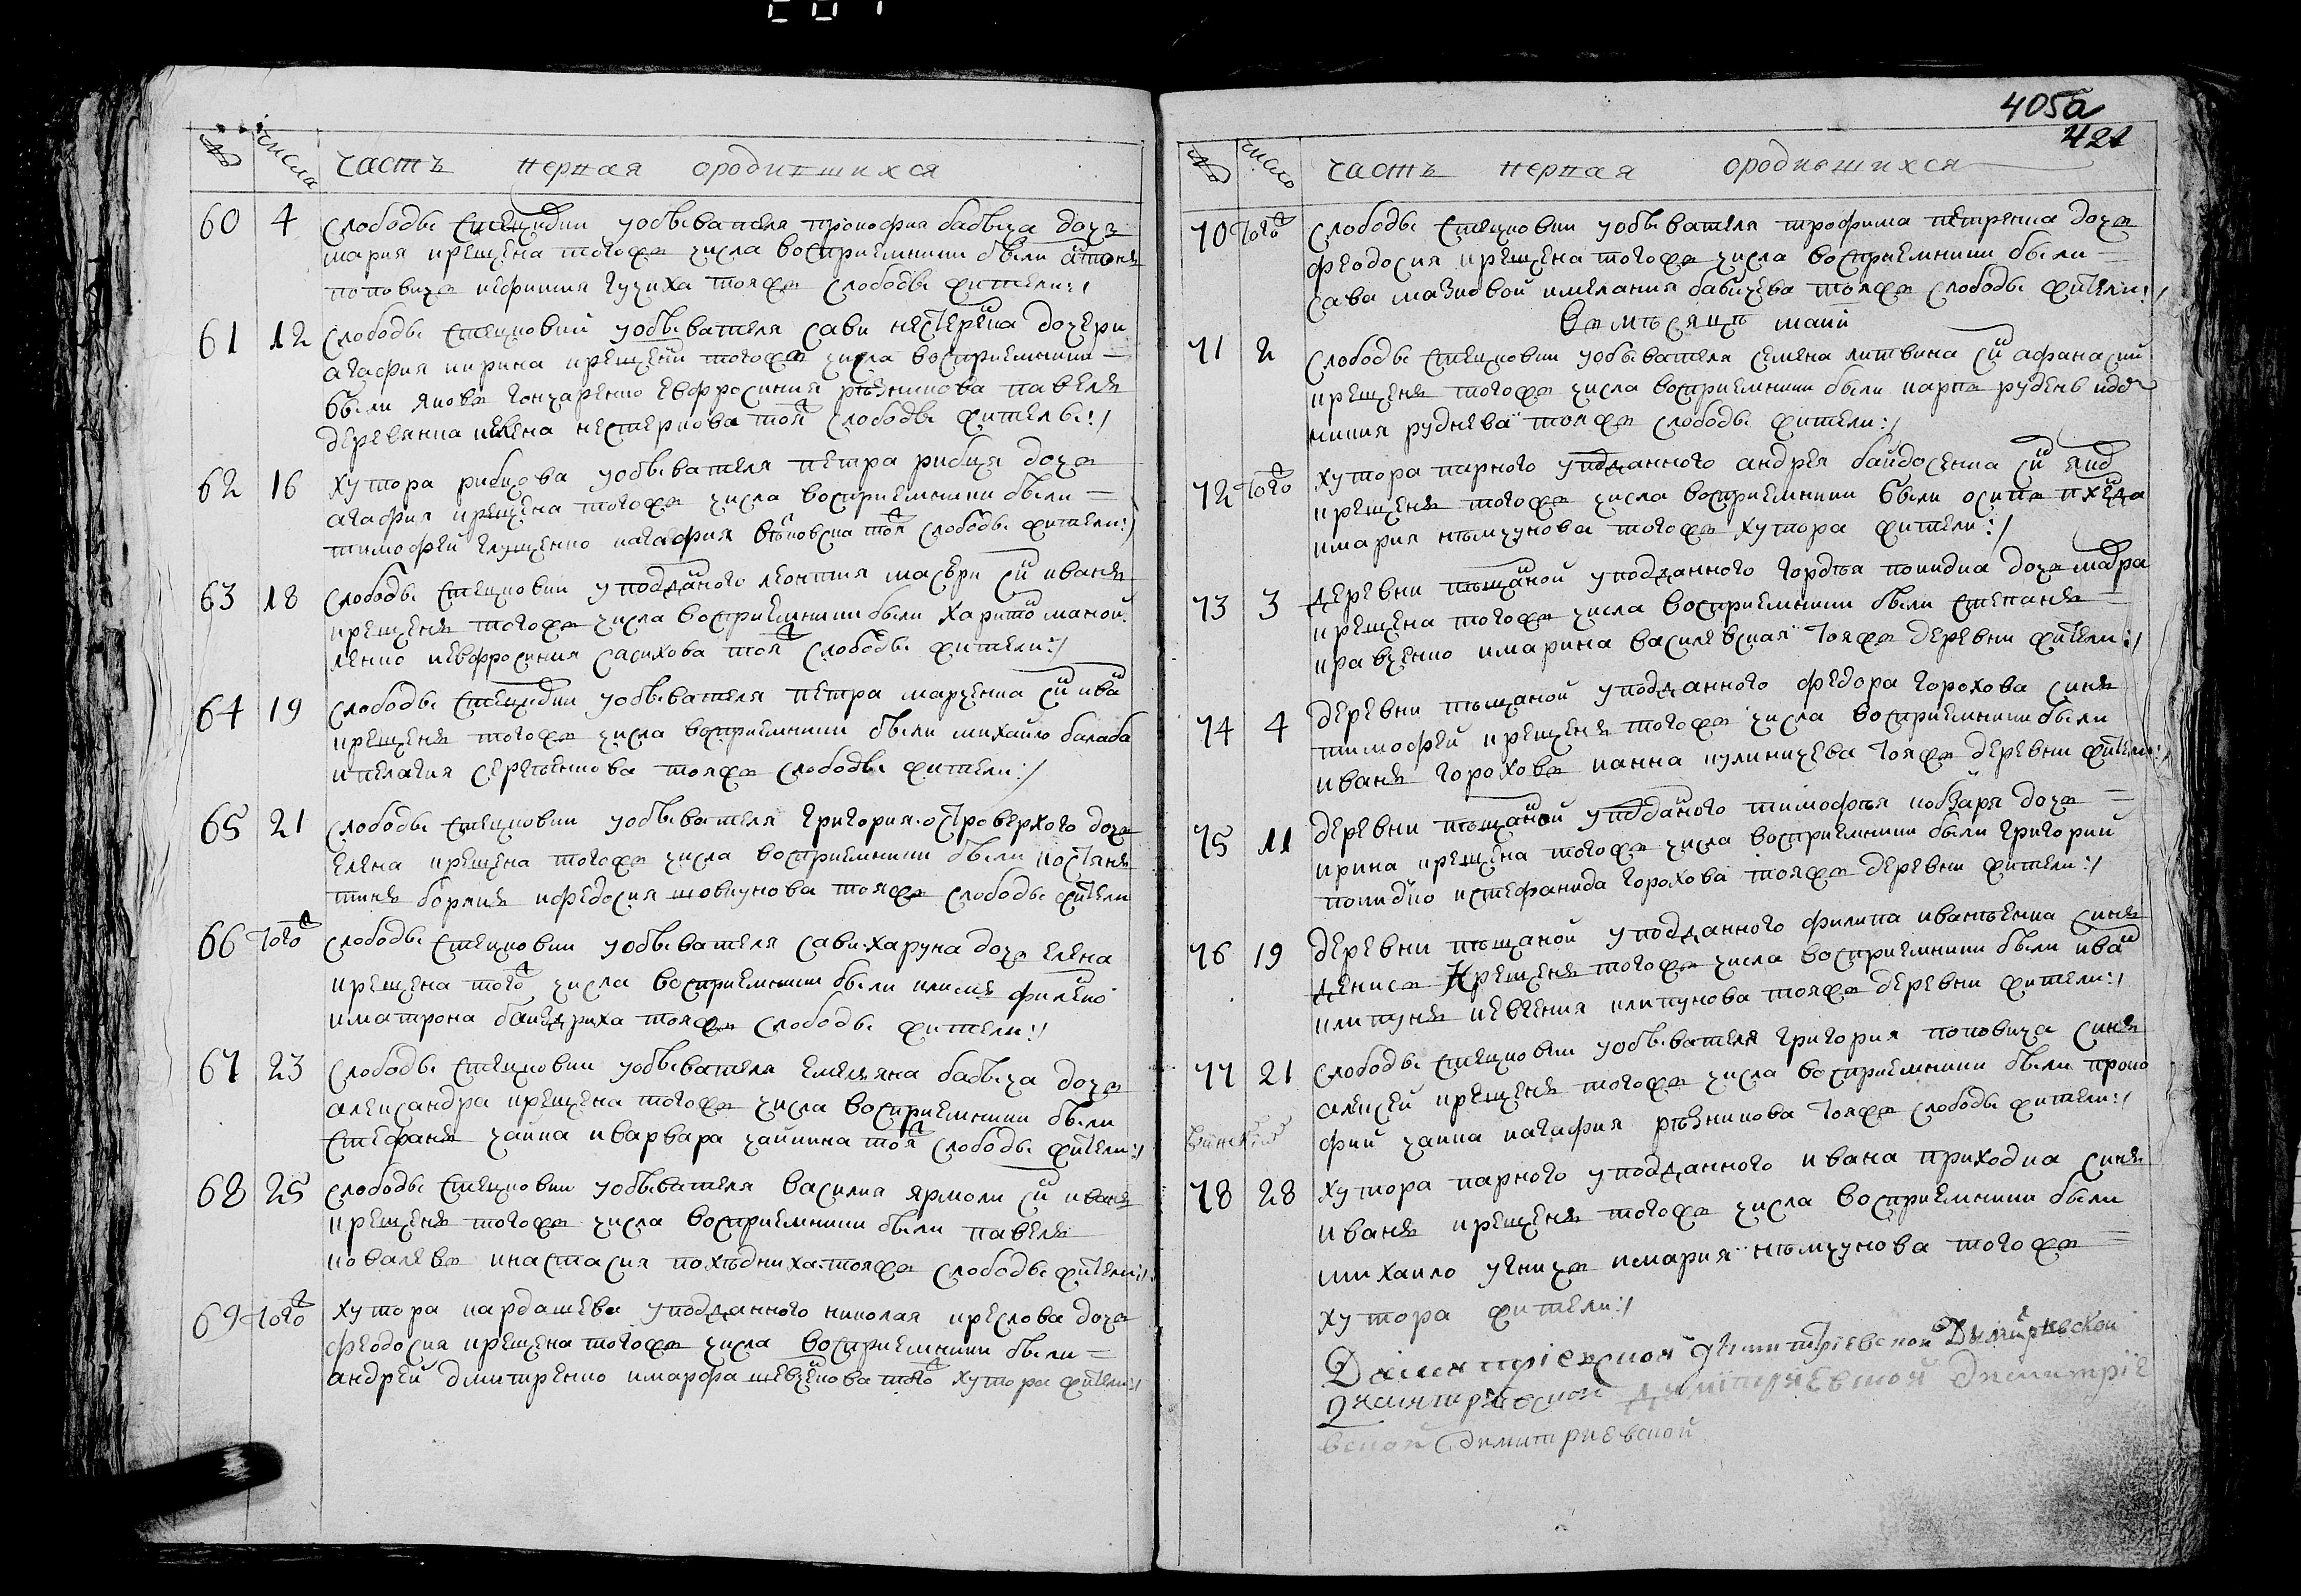 405а
421
№ числа часть первая ородившихся
60 4 слободы стецковки уобывателя прокофия бабыча дочь
мария крещена тогожъ числа восприемники были антонъ
поповичъ иефимия гузиха тояжъ слободы жители
61 12 слободы стецковки уобывателя сави нестеренка дочери
агафия иирина крещены тогожъ числа восприемники
были яковъ гончаренко евфросиния резникова павелъ
деревянка иелена нестеркова тояж слободы жители
62 16 хутора рибцова уобывателя петра рибца дочь
агафия крещена тогожъ числа восприемники были
тимофей глущенко иагафия тояж слободы жители
63 18 слободы стецковки уподданого леонтия сын иванъ
крещенъ тогожъ числа восприемники были харитон маной
ленко иевфросиния сасихова тояж слободы жители
64 19 слободы стецковки уобывателя петра марченка сын иван
крещенъ тогожъ числа восприемники были михайло балаба
ипелагия сергеенкова тояжъ слободы жители
65 21 слободы стецковки уобывателя григория островерхого дочь
елена крещена тогожъ числа восприемники были костян
тинъ борецъ ифедосия шовкунова тояжъ слободы жители
66 тогож слободы стецковки уобывателя сави харуна дочь елена
крещена тогож числа восприемники были климъ филенко
иматрона тояжъ слободы жители
67 23 слободы стецковки уобывателя емельяна бабыча дочь
александра крещена тогожъ числа восприемники были
стефанъ чайка иварвара чайкина тояж слободы жители
68 25 слободы стецковки уобывателя василия ярмоли сын иванъ
крещенъ тогожъ числа восприемники были павелъ
ковалевъ инастасия тояжъ слободы жители
69 тогож хутора кардашева уподданного николая креслова дочь
феодосия крещена тогожъ числа восприемники были
андрей дмитренко имарфа шевченкова тогож хутора жители
№ число часть первая ородившихся
70 тогож слободы стецковки уобывателя трофима петренка дочь
феодосия крещена тогожъ числа восприемники были
сава мазковой имелания бабичева тояжъ слободы жители
Въ мѣсяцѣ маии
71 2 слободы стецковки уобывателя семена литвина сын афанасии
крещенъ тогожъ числа восприемники были карпъ рудень иев
микия руднева тояжъ слободы жители
72 тогож хутора парного уподданного андрея байдосенка сын
крещенъ тогожъ числа восприемники были осипъ
имария нѣмчунова тогожъ хутора жители
73 3 деревни пѣщаной уподданного гордѣя попидка дочь
крещена тогожъ числа восприемники были степанъ
кравченко имарина василевская тояжъ деревни жители
74 4 деревни пѣщаной уподданного федора горохова синъ
тимофей крещенъ тогожъ числа восприемники были
иванъ гороховъ ианна кулиничева тояжъ деревни жители
75 11 деревни пѣщаной уподданого тимофѣя кобзаря дочь
ирина крещена тогожъ числа восприемники были григорий
попидко истефанида горохова тояжъ деревни жители
76 19 деревни пѣщаной уподданного филипа иванѣенка синъ
денисъ Крещенъ тогожъ числа восприемники были иван
клипунъ иевгения клипунова тояжъ деревни жители
77 21 слободы стецковки уобывателя григория поповича синъ
алексей крещенъ тогожъ числа восприемники были проко
фий чайка иагафия рѣзникова тояжъ слободы жители
78 28 хутора парного уподданного ивана приходка синъ
иванъ крещенъ тогожъ числа восприемники были
михаило угничъ имария нѣмчунова тогожъ
хутора жители
Димитриевской димитриевской Димитриевской
димитриевской димитриевской Димитрие
вской Димитриевской